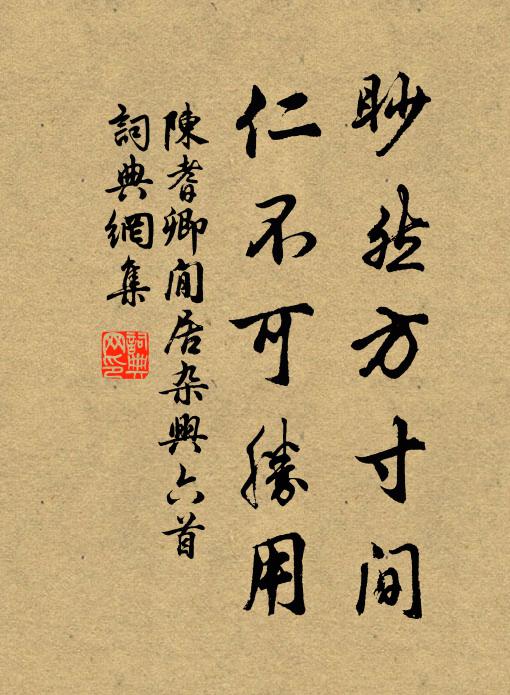 眇然方寸間
仁不可勝用
陳耆卿閒居杂興六首
詞典網集
詞典网印